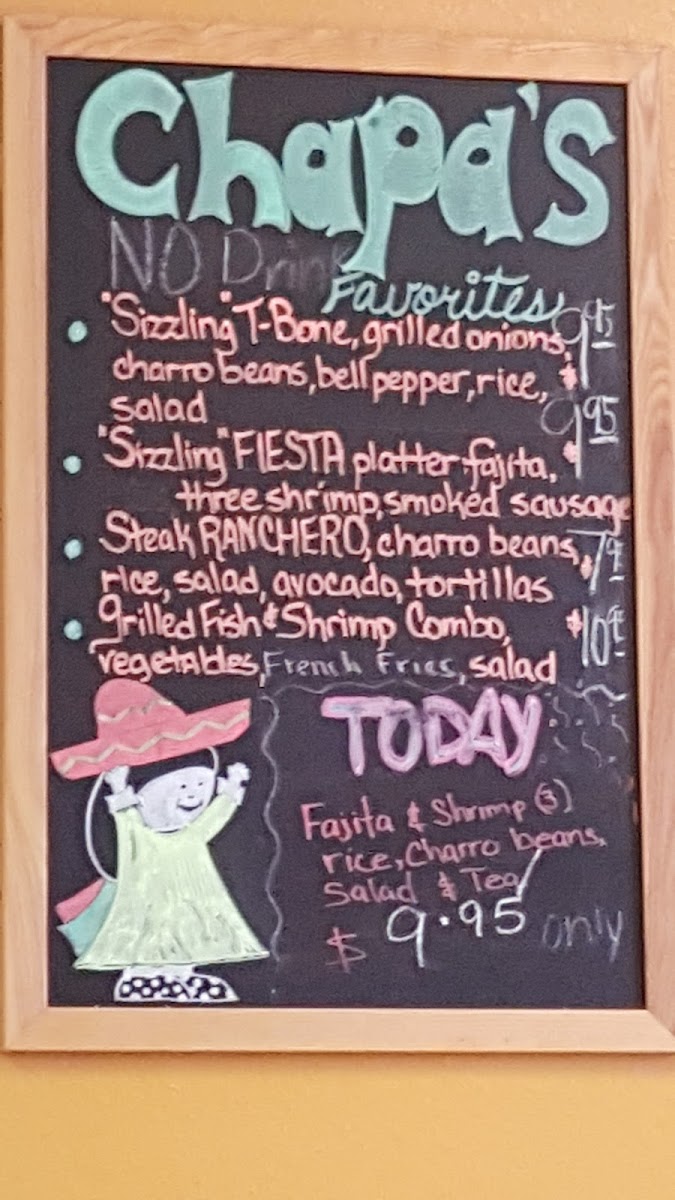 Chapa's
NO Drink
Favorites
"Sizzling" T-Bone, grilled onions, $9.95
charro beans, bell pepper, rice,
salad
"Sizzling" FIESTA platter: fajita, $9.95
three shrimp, smoked sausage
Steak RANCHERO, charro beans, $7
rice, salad, avocado, tortillas
grilled Fish & Shrimp Combo, $10
vegetables, French Fries, salad
TODAY
Fajita & Shrimp (3)
rice, Charro beans,
Salad & Tea
$ 9.95 only